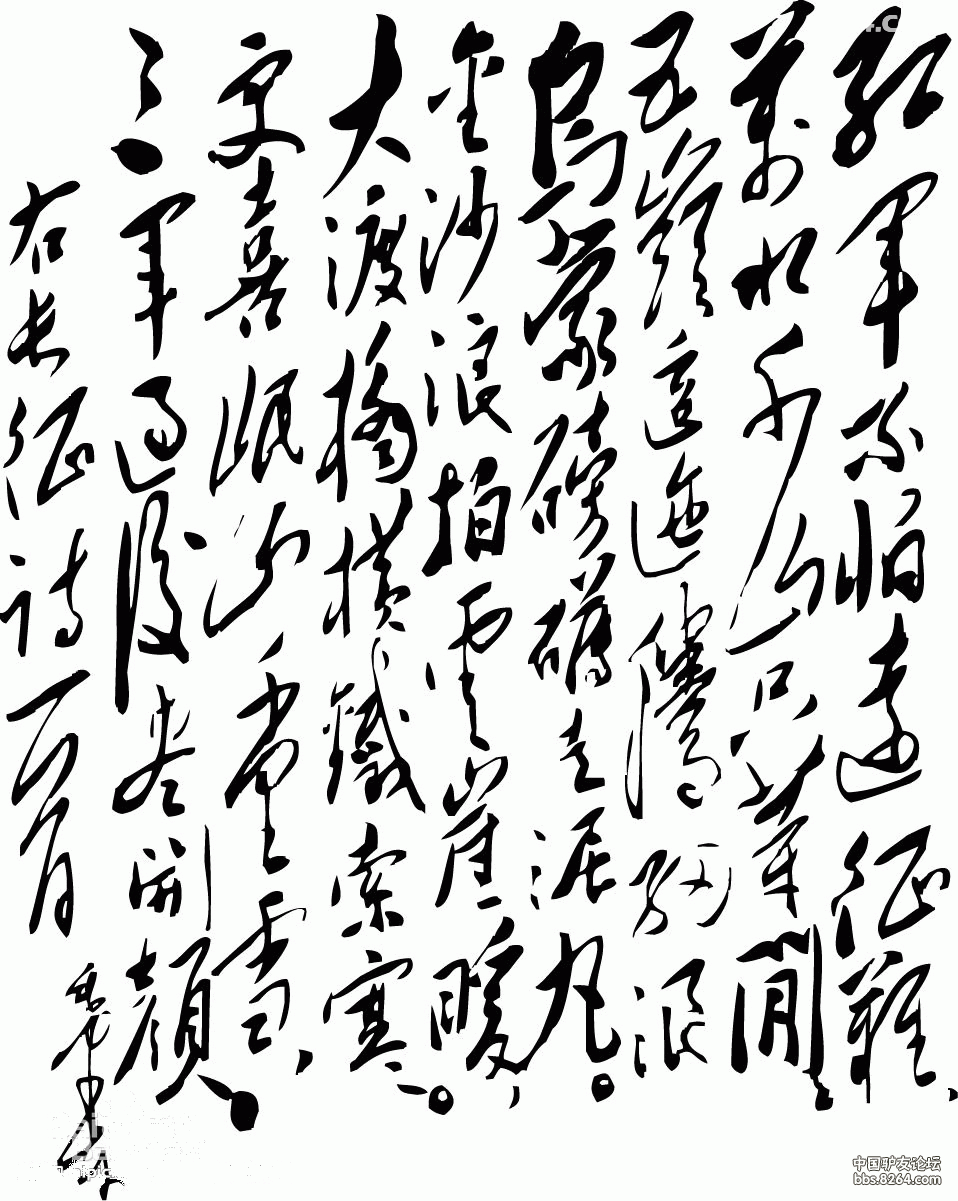 红军不怕远征难、
万水千山只等闲。
五岭逶迤腾细浪
乌蒙磅礴走泥丸。
金沙浪拍云崖暖，
大渡桥横铁索寒。
更喜岷山千里雪，
三军过后尽开颜。
右长征诗一首
毛泽东
中国驴友论坛
bbs.8264.com